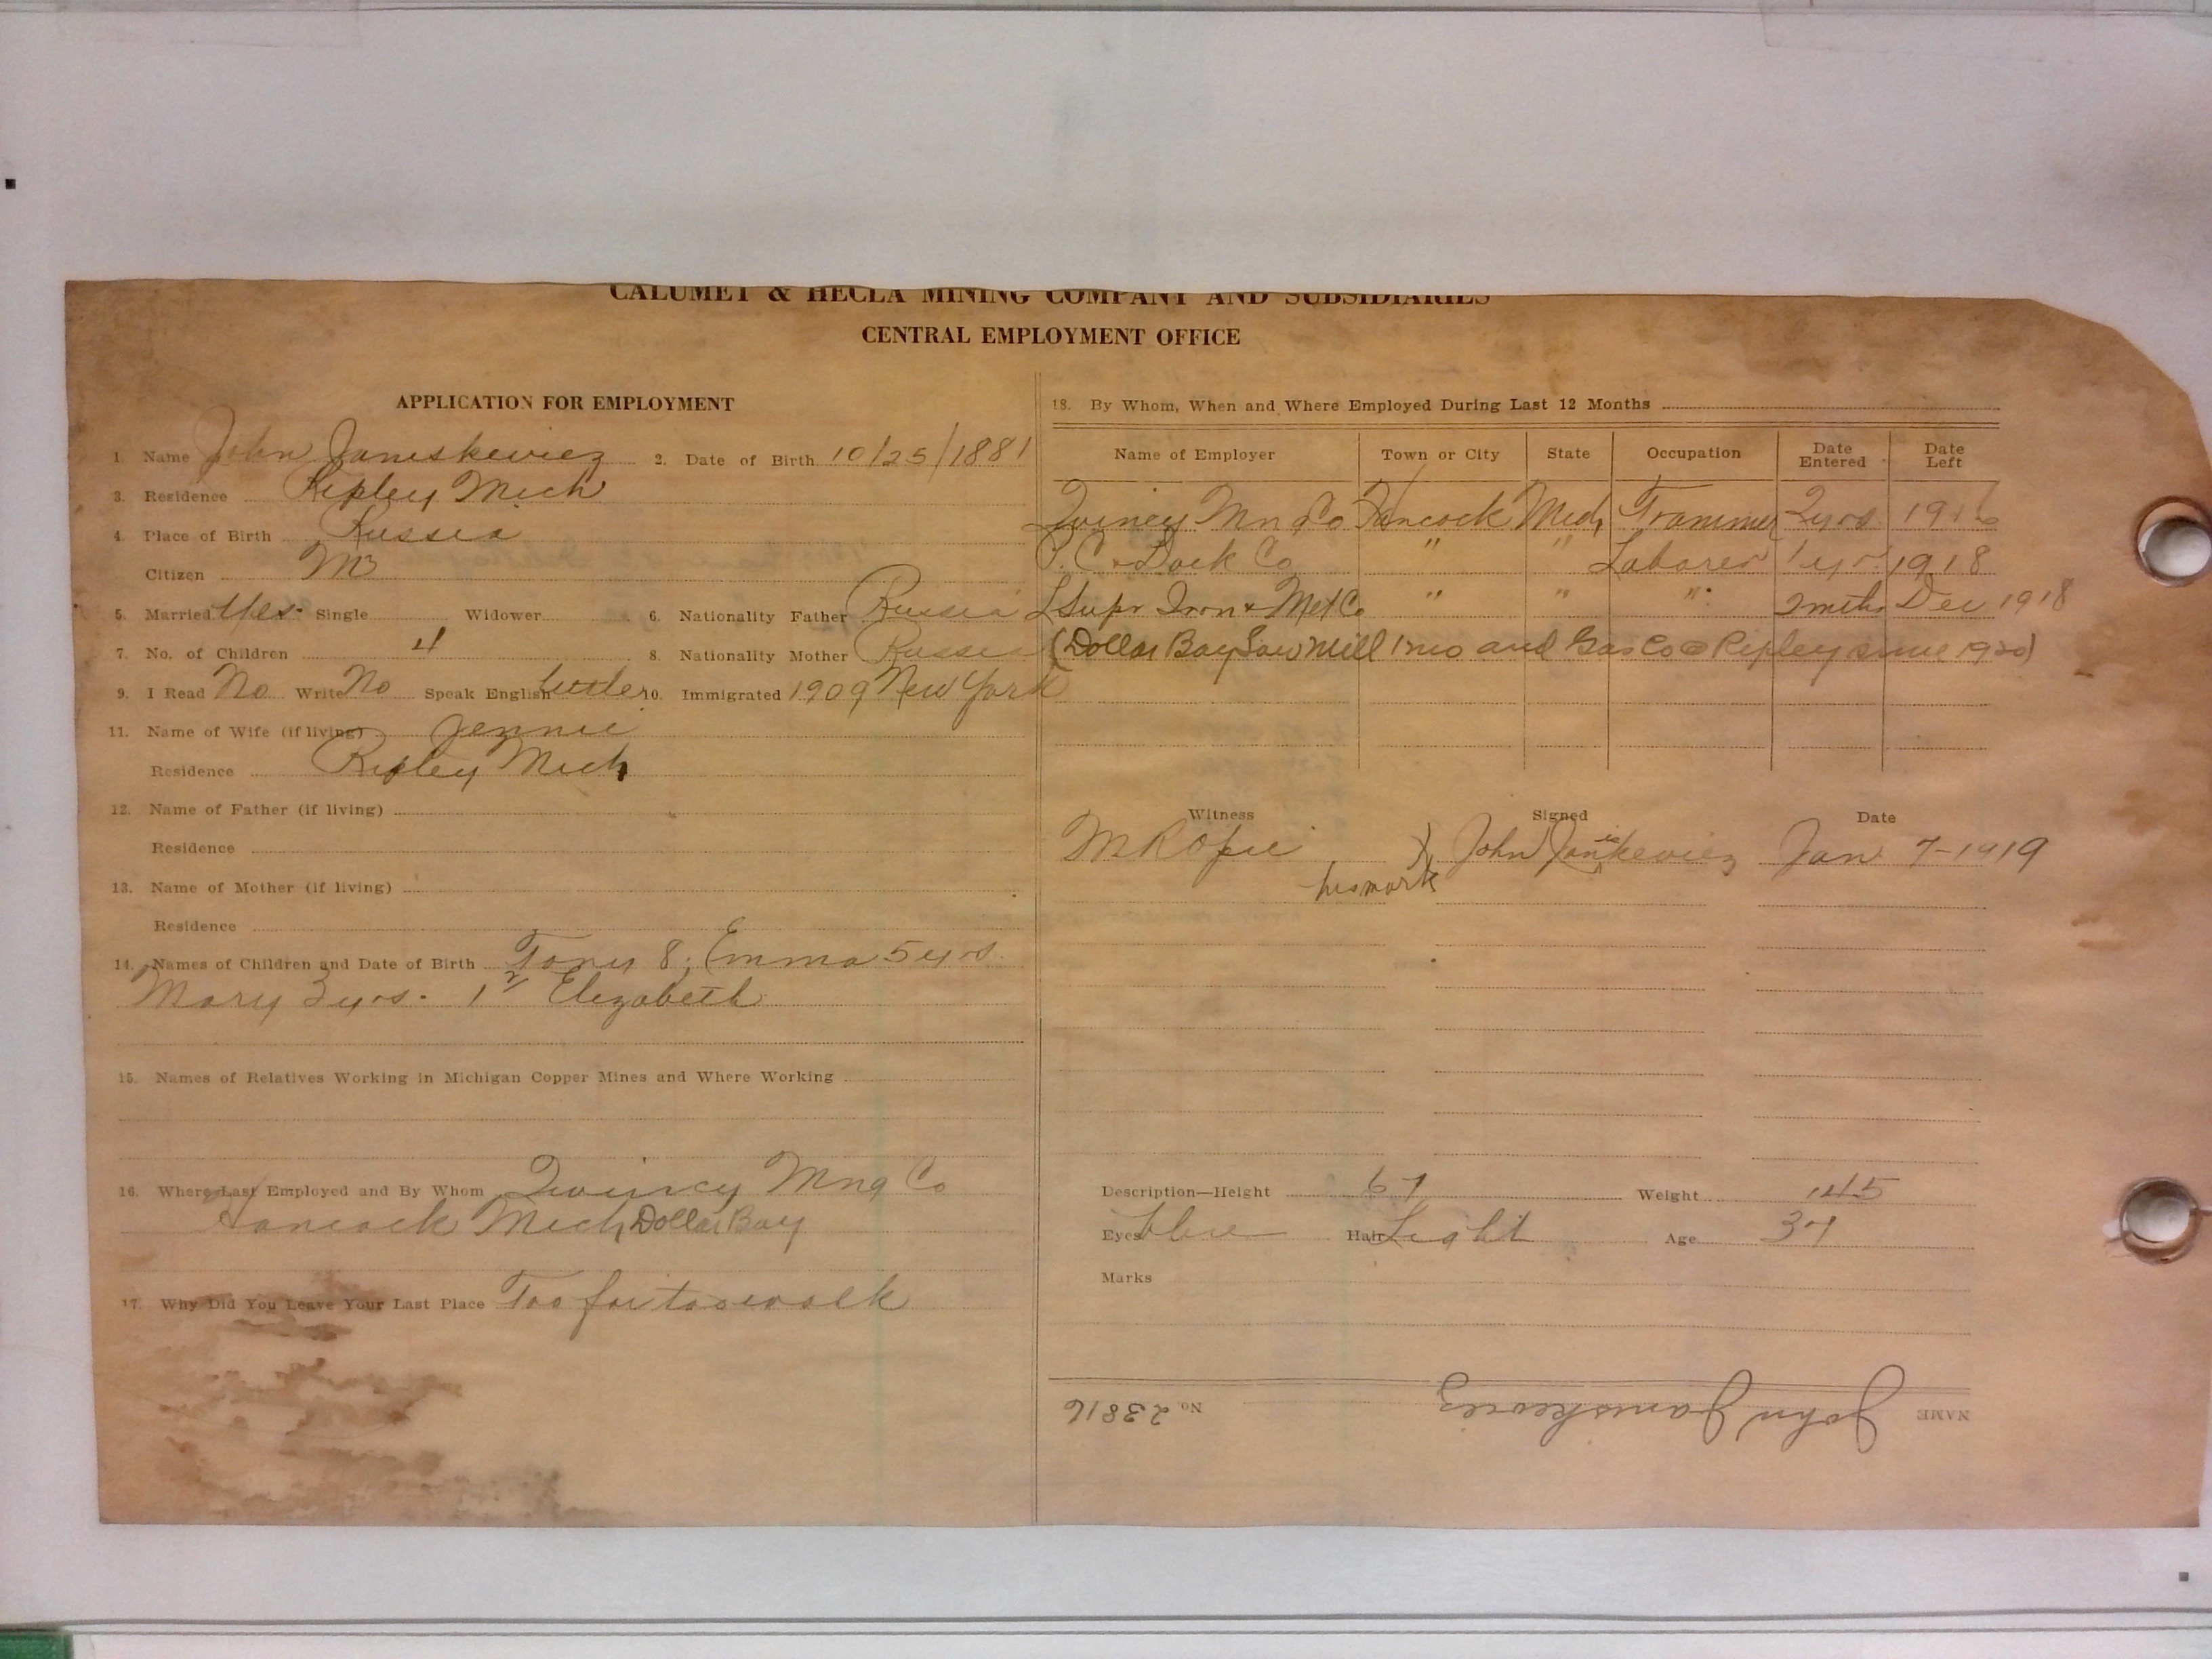 CALUMET & HECLA MINING COMPANY AND SUBSIDIARIES
CENTRAL EMPLOYMENT OFFICE
APPLICATION FOR EMPLOYMENT
1. Name John Janiskewiez 2. Date of Birth 10/25/1881
3. Residence Ripley Mich
4. Place of Birth Russia
Citizen
5. Married Yes Single Widower 6. Nationality Father Russia
7. No. of Children 4 8. Nationality Mother Russia
9. I Read No Write No Speak English little 10. Immigrated 1909 New York
11. Name of Wife (if living) Jennie
Residence Ripley Mich
12. Name of Father (if living)
Residence
13. Name of Mother (if living)
Residence
14. Names of Children and Date of Birth Tony 8; Emma 5 yrs.
Mary 3 yrs. 1 Elizabeth
15. Names of Relatives Working in Michigan Copper Mines and Where Working
16. Where Last Employed and By Whom Quincy Mng Co
Hancock Mich, Dollar Bay
17. Why Did You Leave Your Last Place Too far to walk
18. By Whom, When and Where Employed During Last 12 Months
Name of Employer Town or City State Occupation Date Entered Date Left
Quincy Mn Co Hancock Mich Trammer 2 yrs 1916
P. C. & Dock Co " " Laborer 1 yr. 1918
L Supr Iron & Met Co " " " 2 mths Dec 1918
(Dollar Bay Saw Mill 1 mo and Gas Co @ Ripley since 1920)
Witness Signed Date
M Ropie X John Janiskewiez Jan 7-1919
his mark
Description—Height 67 Weight 145
Eyes blue Hair Light Age 37
Marks
NAME John Janiskewiez No. 23816